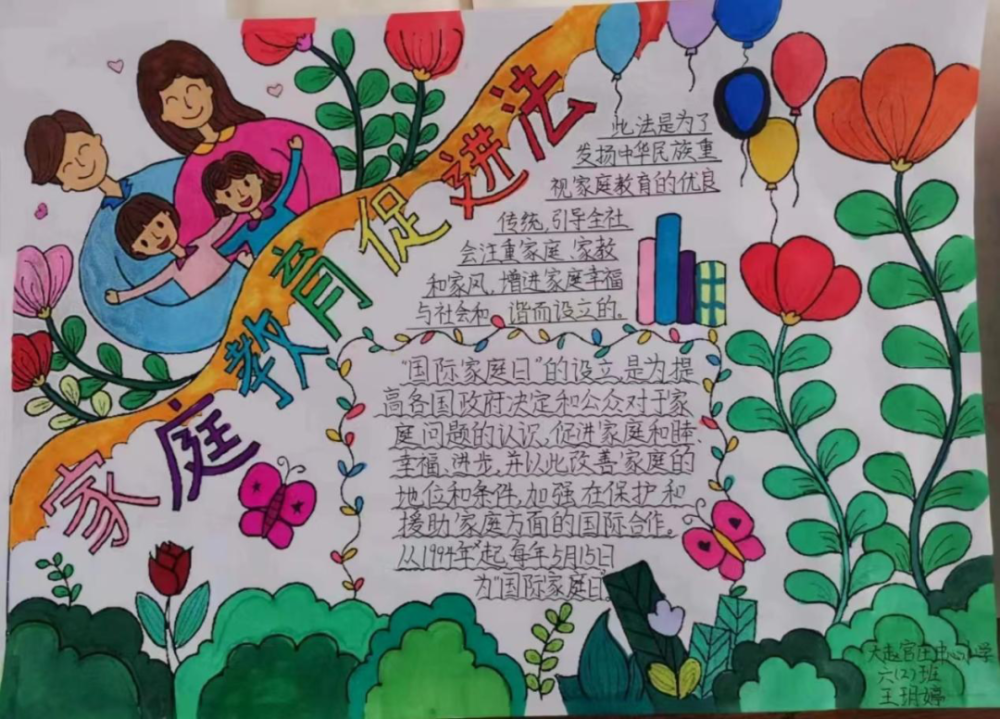 家庭教育促进法
此法是为了
发扬中华民族重
视家庭教育的优良
传统,引导全社
会注重家庭、家教
和家风,增进家庭幸福
与社会和谐而设立的。
"国际家庭日"的设立,是为提
高各国政府决定和公众对于家
庭问题的认识,促进家庭和睦、
幸福、进步,并以此改善家庭的
地位和条件,加强在保护和
援助家庭方面的国际合作。
从1994年起,每年5月15日
为"国际家庭日
大赵官庄中心小学
六(2)班
王玥婷